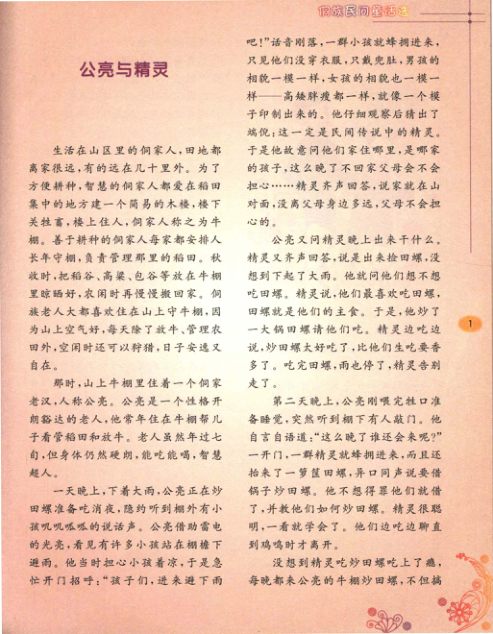 侗族民间童话选
公亮与精灵
生活在山区里的侗家人，田地都
离家很远，有的远在几十里外。为了
方便耕种，智慧的侗家人都爱在稻田
集中的地方建一个简易的木楼，楼下
关牲畜，楼上住人，侗家人称之为牛
棚。善于耕种的侗家人每家都安排人
长年守棚，负责管理那里的稻田。秋
收时，把稻谷、高粱、包谷等放在牛棚
里晾晒好，农闲时再慢慢搬回家。侗
族老人大都喜欢住在山上守牛棚，因
为山上空气好，每天除了放牛、管理农
田外，空闲时还可以狩猎，日子安逸又
自在。
那时，山上牛棚里住着一个侗家
老汉，人称公亮。公亮是一个性格开
朗豁达的老人，他常年住在牛棚帮儿
子看管稻田和放牛。老人虽然年过七
旬，但身体仍然硬朗，能吃能喝，智慧
超人。
一天晚上，下着大雨，公亮正在炒
田螺准备吃消夜，隐约听到棚外有小
孩叽叽呱呱的说话声。公亮借助雷电
的光亮，看见有许多小孩站在棚檐下
避雨。他当时担心小孩着凉，于是急
忙开门招呼：“孩子们，进来避下雨
吧！”话音刚落，一群小孩就蜂拥进来，
只见他们没穿衣服，只戴兜肚，男孩的
相貌一模一样，女孩的相貌也一模一
样——高矮胖瘦都一样，就像一个模
子印制出来的。他仔细观察后猜出了
端倪：这一定是民间传说中的精灵。
于是他故意问他们家住哪里，是哪家
的孩子，这么晚了不回家父母会不会
担心……精灵齐声回答，说家就在山
对面，没离父母身边多远，父母不会担
心的。
公亮又问精灵晚上出来干什么。
精灵又齐声回答，说是出来捡田螺，没
想到下起了大雨。他就问他们想不想
吃田螺。精灵说，他们最喜欢吃田螺，
田螺就是他们的主食。于是，他炒了
一大锅田螺请他们吃。精灵边吃边
说，炒田螺太好吃了，比他们生吃要香
多了。吃完田螺，雨也停了，精灵告别
走了。
第二天晚上，公亮刚喂完牲口准
备睡觉，突然听到棚下有人敲门。他
自言自语道：“这么晚了谁还会来呢？”
一开门，一群精灵就蜂拥进来，而且还
抬来了一箩筐田螺，异口同声说要借
锅子炒田螺。他不想得罪他们就借
了，并教他们如何炒田螺。精灵很聪
明，一看就学会了。他们边吃边聊直
到鸡鸣时才离开。
没想到精灵吃炒田螺吃上了瘾，
每晚都来公亮的牛棚炒田螺，不但搞
1